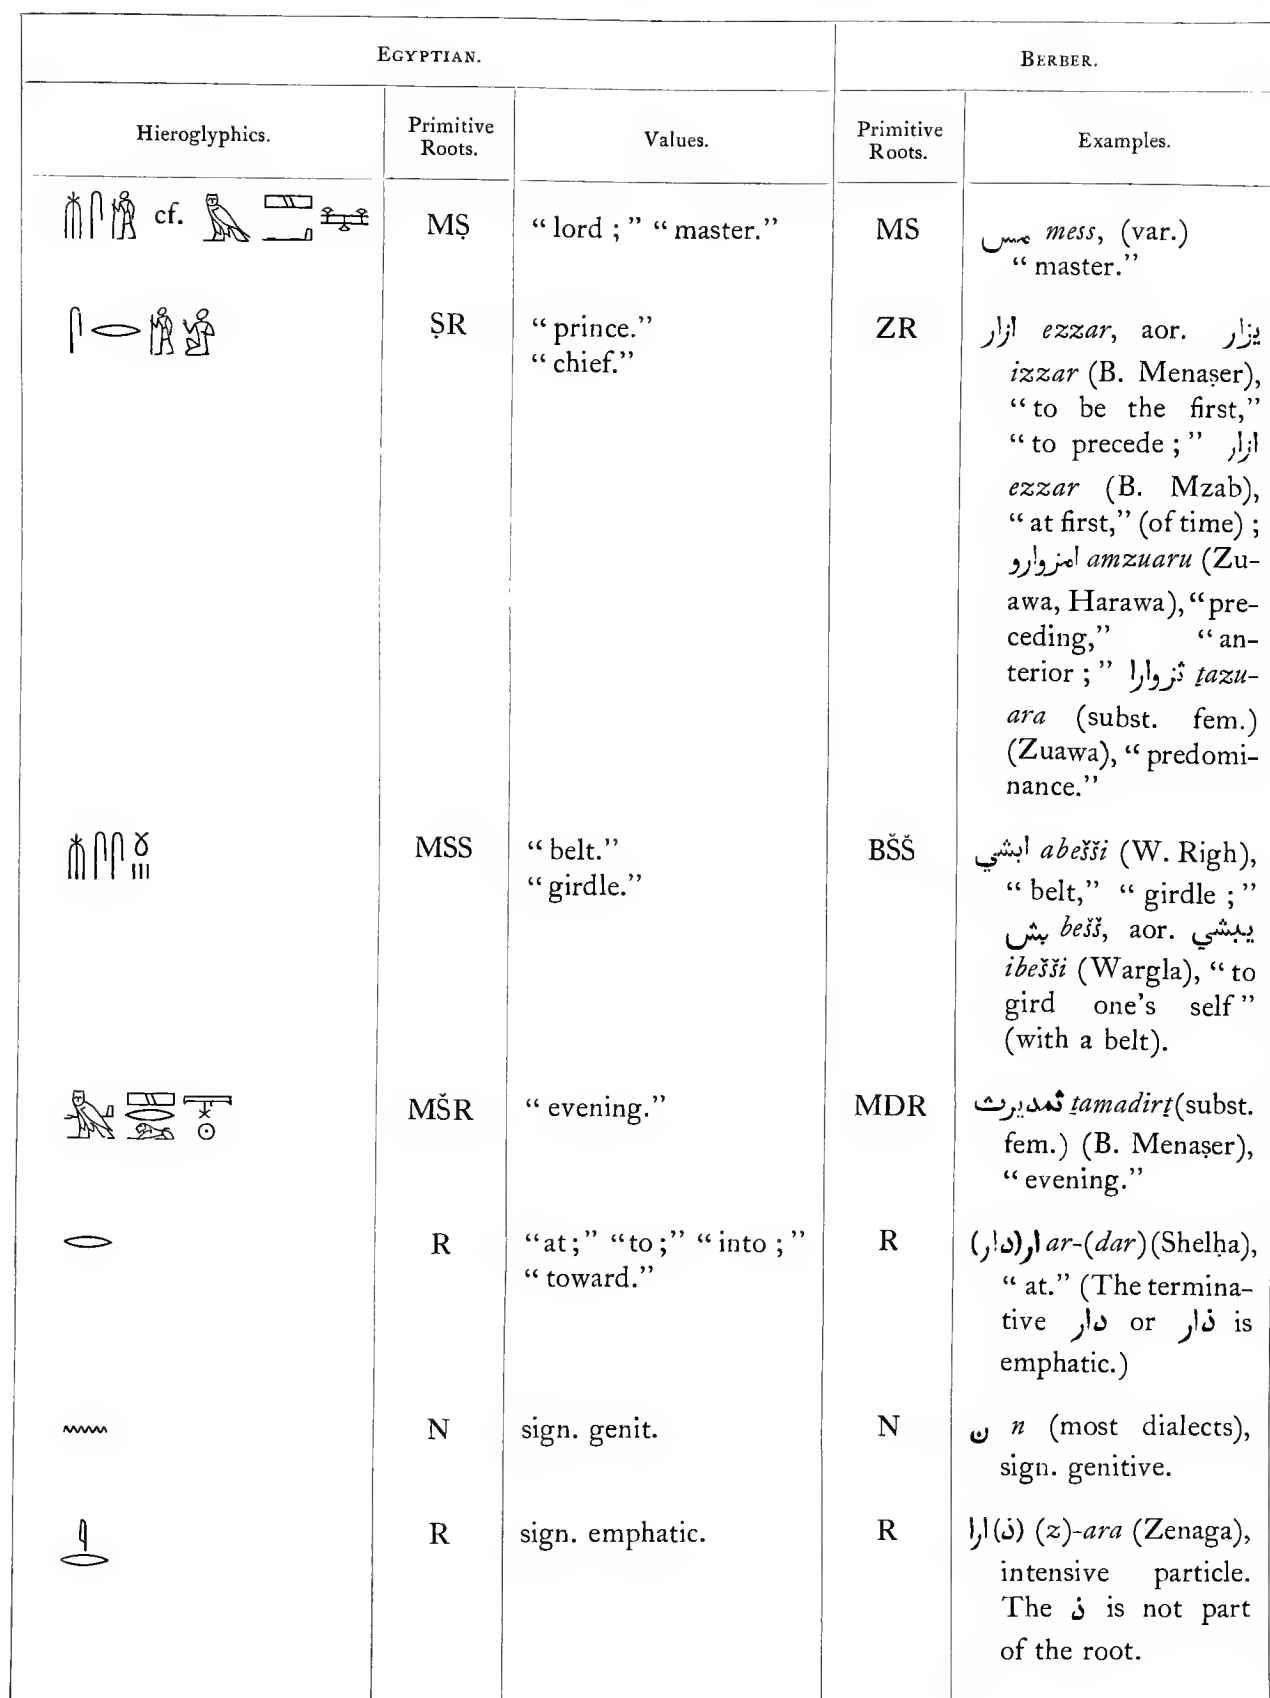 EGYPTIAN.
BERBER.
Hieroglyphics.
Primitive
Roots.
Values.
Primitive
Roots.
Examples.
cf.
MṢ
“ lord ; ” “ master.”
MS
مس mess, (var.)
“ master.”
ṢR
“ prince.”
“ chief.”
ZR
ازار ezzar, aor. يزار
izzar (B. Menaṣer),
“ to be the first,”
“ to precede ; ” ازار
ezzar (B. Mzab),
“ at first,” (of time) ;
امزوارو amzuaru (Zu-
awa, Harawa), “ pre-
ceding,” “ an-
terior ; ” ثزوارا ṯazu-
ara (subst. fem.)
(Zuawa), “ predomi-
nance.”
MSS
“ belt.”
“ girdle.”
BŠŠ
ابشي abešši (W. Righ),
“ belt,” “ girdle ; ”
بش bešš, aor. يبشي
ibešši (Wargla), “ to
gird one's self ”
(with a belt).
MŠR
“ evening.”
MDR
ثمديرث ṯamadirṯ (subst.
fem.) (B. Menaṣer),
“ evening.”
R
“ at ; ” “ to ; ” “ into ; ”
“ toward.”
R
ار(دار) ar-(dar) (Shelḥa),
“ at.” (The termina-
tive دار or ذار is
emphatic.)
N
sign. genit.
N
ن n (most dialects),
sign. genitive.
R
sign. emphatic.
R
(ذ)ارا (z)-ara (Zenaga),
intensive particle.
The ذ is not part
of the root.